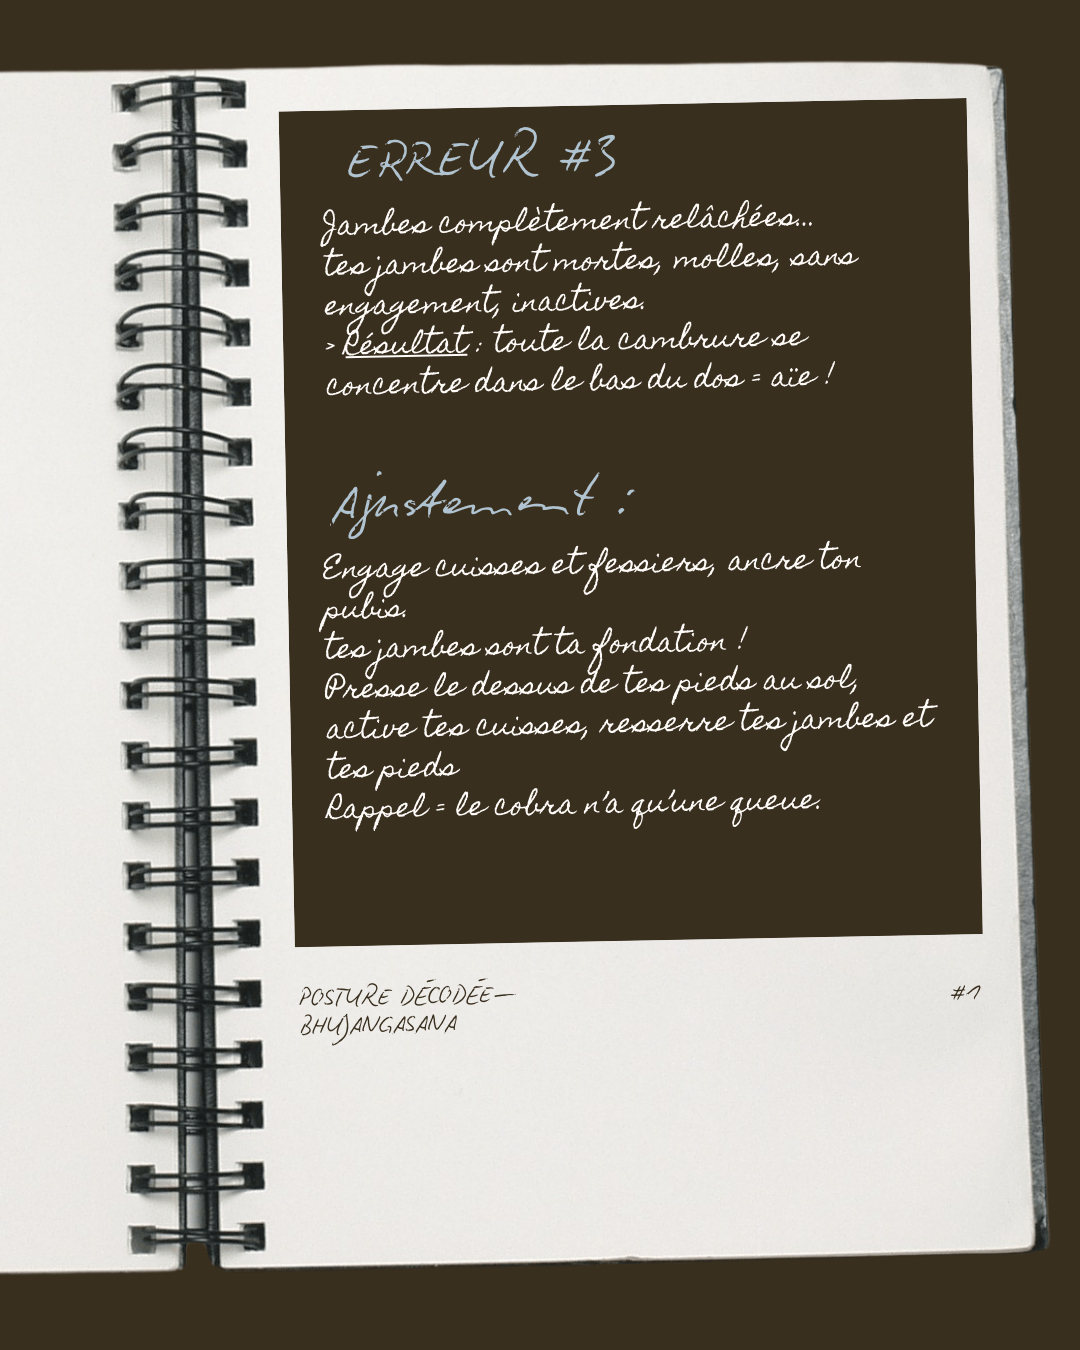 ERREUR #3
Jambes complètement relâchées...
tes jambes sont mortes, molles, sans
engagement, inactives.
> Résultat : toute la cambrure se
concentre dans le bas du dos = aïe !
Ajustement :
Engage cuisses et fessiers, ancre ton
pubis.
tes jambes sont ta fondation !
Presse le dessus de tes pieds au sol,
active tes cuisses, resserre tes jambes et
tes pieds
Rappel = le cobra n'a qu'une queue.
POSTURE DÉCODÉE—
BHUJANGASANA
#1